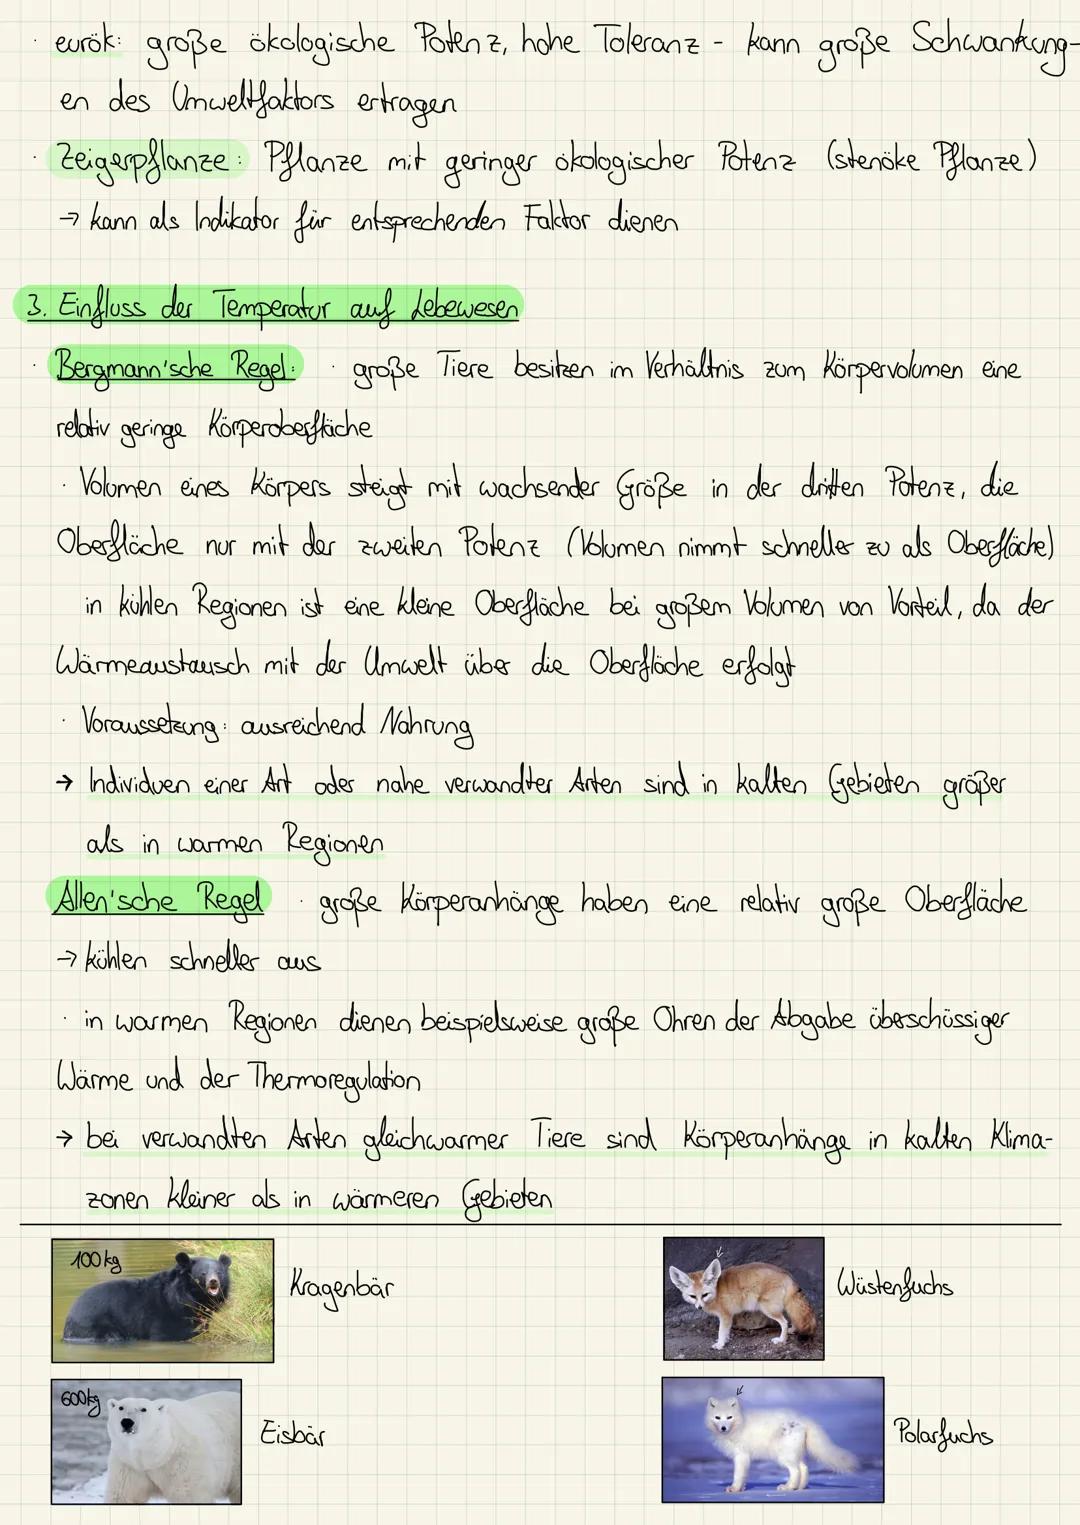 · eurök: große ökologische Potenz, hohe Toleranz - kann große Schwankung-
en des Umweltfaktors ertragen
· Zeigerpflanze: Pflanze mit geringer ökologischer Potenz (stenöke Pflanze)
→ kann als Indikator für entsprechenden Faktor dienen
3. Einfluss der Temperatur auf Lebewesen
· Bergmann'sche Regel: · große Tiere besitzen im Verhältnis zum Körpervolumen eine
relativ geringe Körperoberfläche
· Volumen eines Körpers steigt mit wachsender Größe in der dritten Potenz, die
Oberfläche nur mit der zweiten Potenz (Volumen nimmt schneller zu als Oberfläche)
in kühlen Regionen ist eine kleine Oberfläche bei großem Volumen von Vorteil, da der
Wärmeaustausch mit der Umwelt über die Oberfläche erfolgt
· Voraussetzung: ausreichend Nahrung
→ Individuen einer Art oder nahe verwandter Arten sind in kalten Gebieten größer
als in warmen Regionen
Allen'sche Regel · große Körperanhänge haben eine relativ große Oberfläche
→ kühlen schneller aus
· in warmen Regionen dienen beispielsweise große Ohren der Abgabe überschüssiger
Wärme und der Thermoregulation
→ bei verwandten Arten gleichwarmer Tiere sind Körperanhänge in kalten Klima-
zonen kleiner als in wärmeren Gebieten
100 kg
Kragenbär
Wüstenfuchs
600kg
Eisbär
Polarfuchs